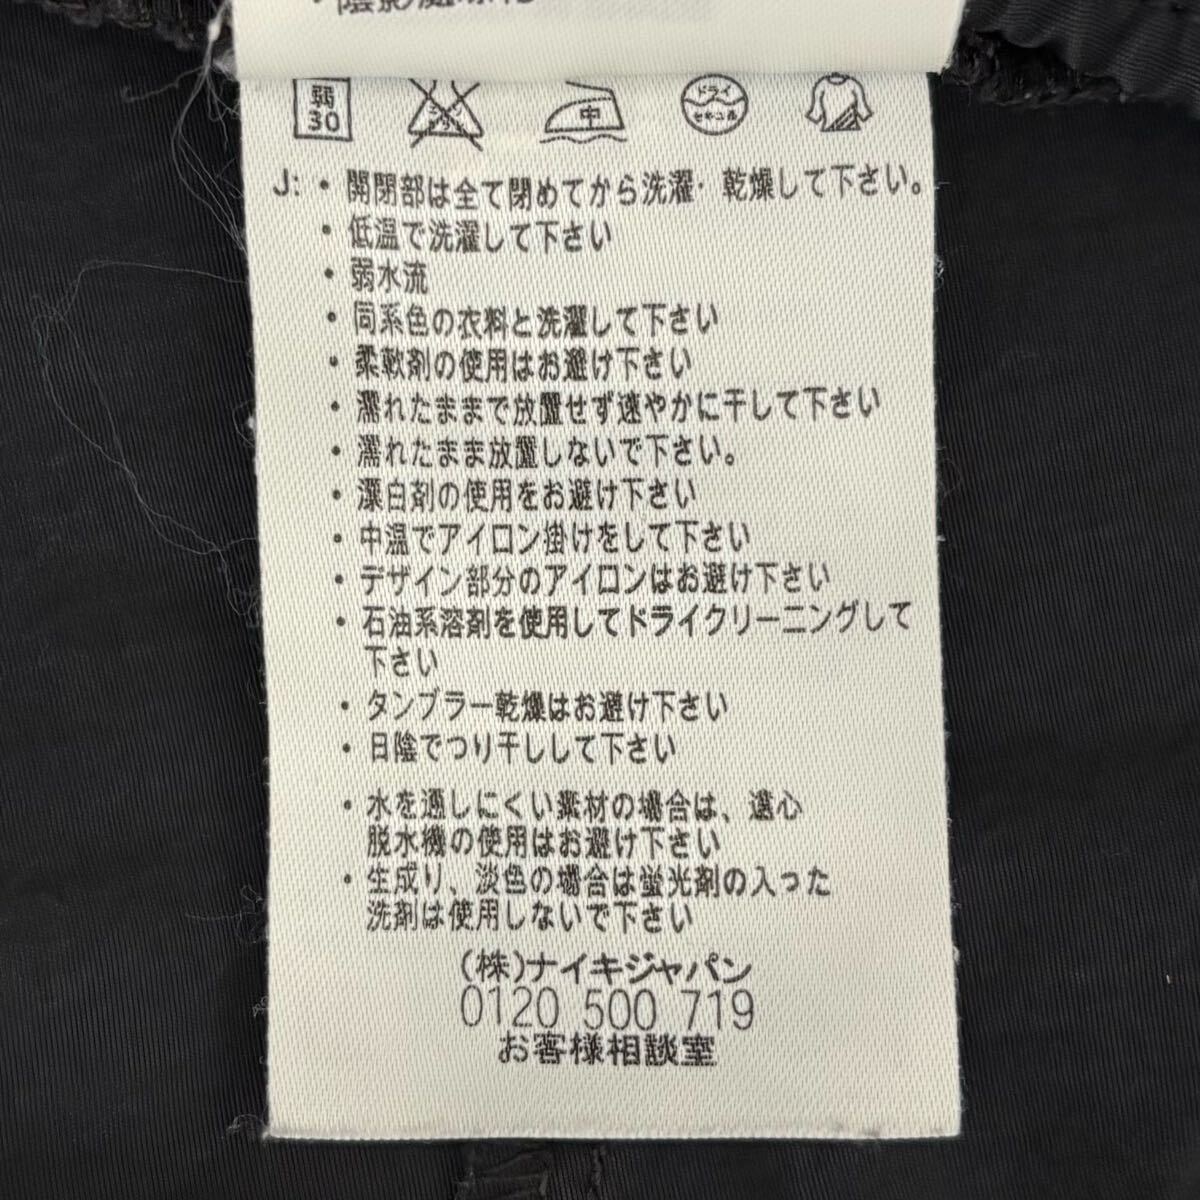 弱
30
中
ドライ
セキユ系
J: ・開閉部は全て閉めてから洗濯・乾燥して下さい。
・低温で洗濯して下さい
・弱水流
・同系色の衣料と洗濯して下さい
・柔軟剤の使用はお避け下さい
・濡れたままで放置せず速やかに干して下さい
・濡れたまま放置しないで下さい。
・漂白剤の使用をお避け下さい
・中温でアイロン掛けをして下さい
・デザイン部分のアイロンはお避け下さい
・石油系溶剤を使用してドライクリーニングして
下さい
・タンブラー乾燥はお避け下さい
・日陰でつり干しして下さい
・水を通しにくい素材の場合は、遠心
脱水機の使用はお避け下さい
・生成り、淡色の場合は蛍光剤の入った
洗剤は使用しないで下さい
(株)ナイキジャパン
0120 500 719
お客様相談室